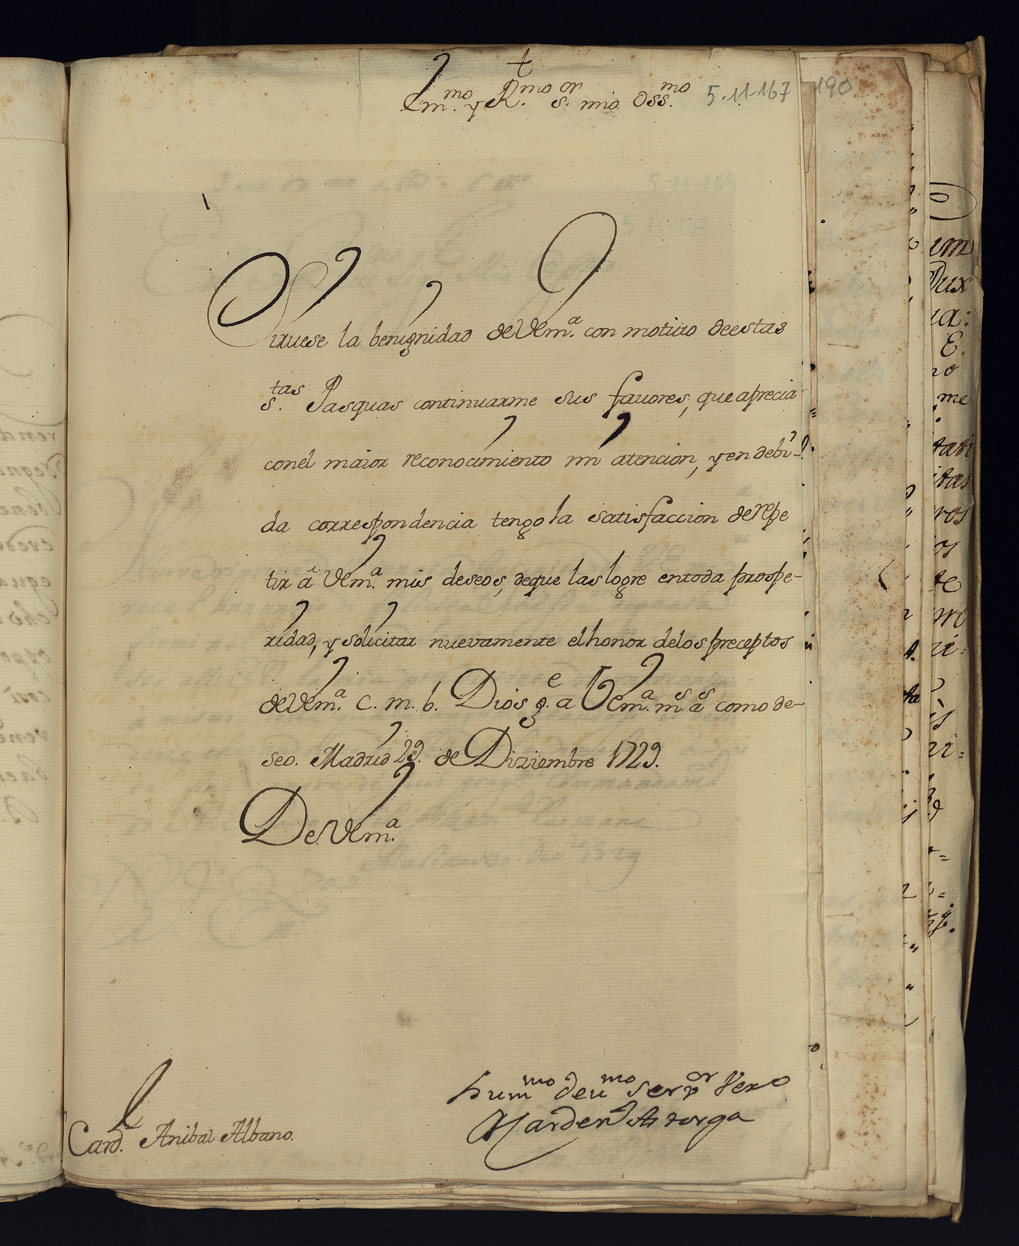 †
Em.mo y R.mo s.or mio oss.mo 5-11-167 190
Siruese la benignidad de VEm.a con motiuo de estas
s.tas Pasquas continuarme sus fauores, que aprecia
con el maior reconocimiento mi atencion, y en debi-
da correspondencia tengo la satisfaccion de repe
tir â VEm.a mis deseos, de que las logre en toda prospe-
ridad, y solicitar nueuamente el honor de los preceptos
de VEm.a c. m. b. Dios g.e a VEm.a m.s a.s como de-
seo. Madrid 29. de Diziembre 1729.
De VEm.a
hum.mo deu.mo seru.or Vero
Card. Anibal Albano.